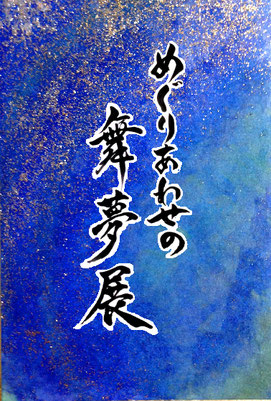 めぐりあわせの
舞夢展